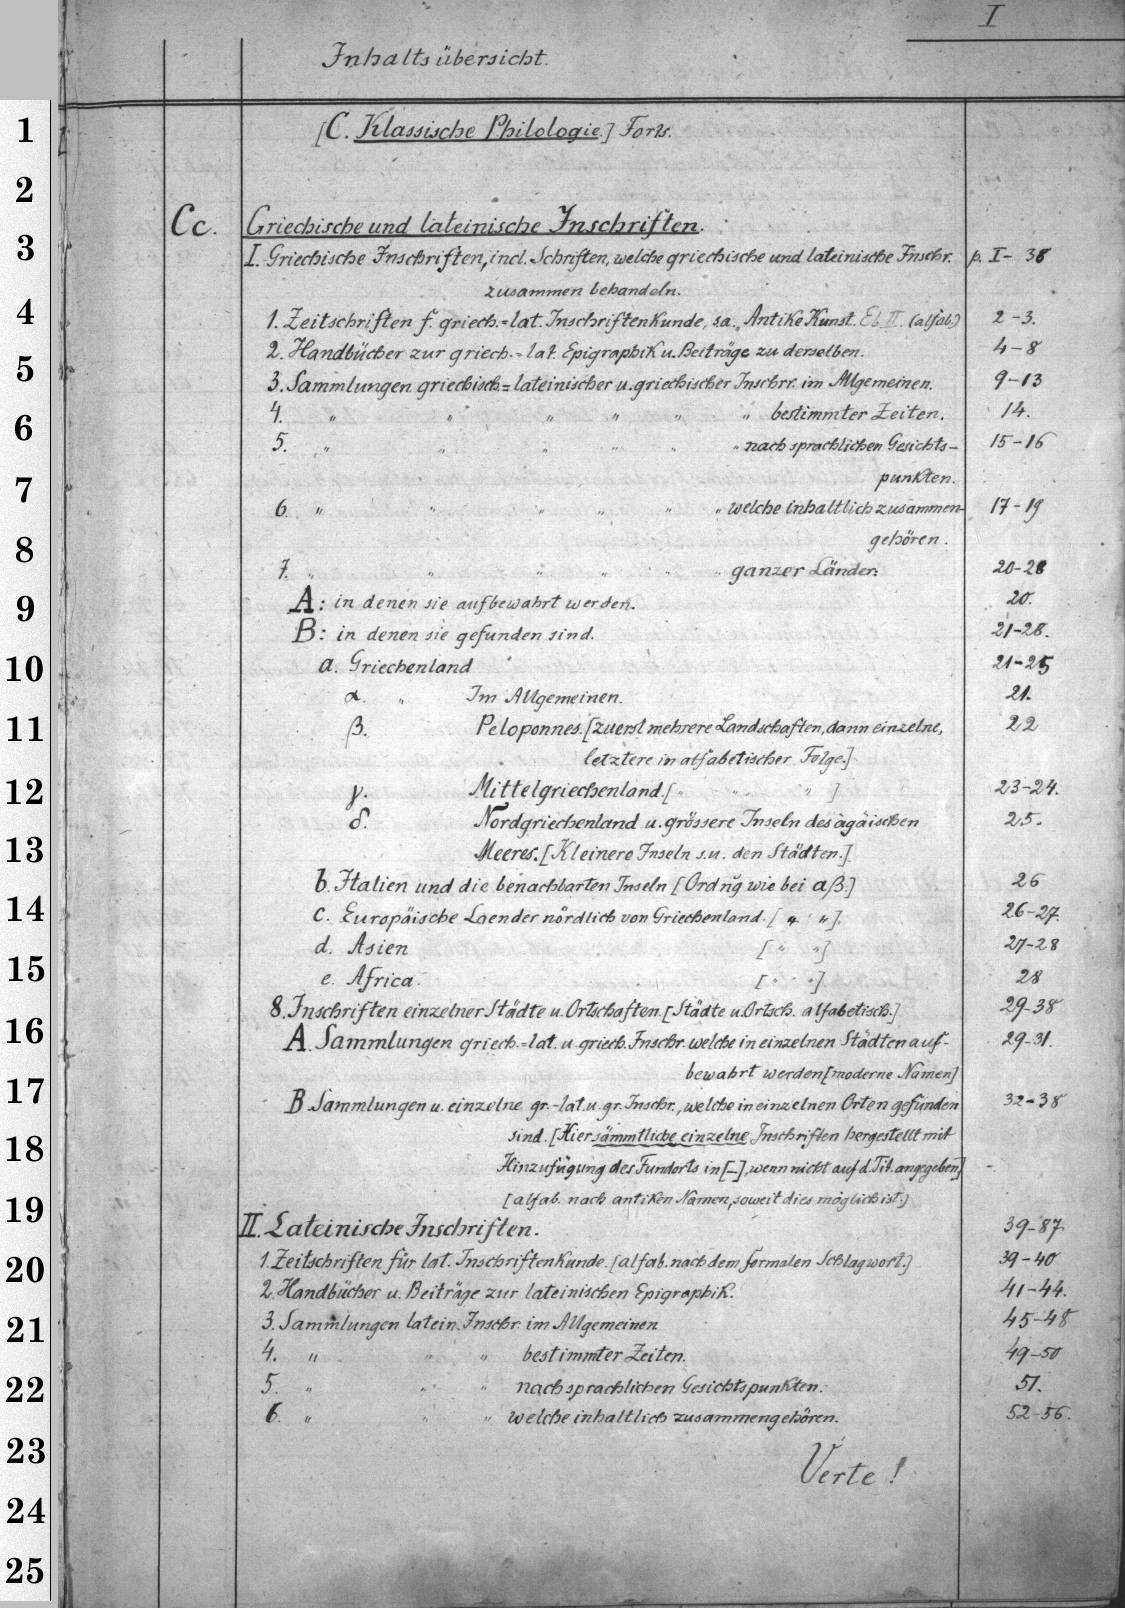 I
Inhaltsübersicht.
1
[C. Klassische Philologie.] Forts.
2
Cc. Griechische und lateinische Inschriften.
3
I. Griechische Inschriften, incl. Schriften, welche griechische und lateinische Inschr. p. I - 38
zusammen behandeln.
4
1. Zeitschriften f. griech.=lat. Inschriftenkunde, s.a. Antike Kunst. Eb II. (alfab.) 2-3.
2. Handbücher zur griech.=lat. Epigraphik u. Beiträge zu derselben. 4-8
5
3. Sammlungen griechisch=lateinischer u. griechischer Inschrr. im Allgemeinen. 9-13
4. " " " " " " bestimmter Zeiten. 14.
6
5. " " " " " " nach sprachlichen Gesichts- 15-16
punkten.
7
6. " " " " " " welche inhaltlich zusammen- 17-19
gehören.
8
7. " " " " " " ganzer Länder: 20-28
A: in denen sie aufbewahrt werden. 20.
9
B: in denen sie gefunden sind. 21-28.
10
a. Griechenland 21-25
α. " Im Allgemeinen. 21.
11
β. Peloponnes. [zuerst mehrere Landschaften, dann einzelne, 22
letztere in alfabetischer Folge.]
12
γ. Mittelgriechenland. [" " " "] 23-24.
δ. Nordgriechenland u. grössere Inseln des ägäischen 25.
13
Meeres. [Kleinere Inseln s.u. den Städten.]
b. Italien und die benachbarten Inseln [Ordnḡ wie bei aβ.] 26
14
c. Europäische Laender nördlich von Griechenland. [" " "]. 26-27.
d. Asien [" "] 27-28
15
e. Africa. [" " "] 28
8. Inschriften einzelner Städte u. Ortschaften. [Städte u. Ortsch. alfabetisch.] 29-38
16
A. Sammlungen griech.=lat. u. griech. Inschr. welche in einzelnen Städten auf- 29-31.
bewahrt werden [moderne Namen]
17
B Sammlungen u. einzelne gr.-lat. u. gr. Inschr., welche in einzelnen Orten gefunden 32-38
18
sind. [Hier sämmtliche einzelne Inschriften hergestellt mit
Hinzufügung des Fundorts in [-], wenn nicht auf d. Tit. angegeben,]
19
[alfab. nach antiken Namen, soweit dies möglich ist.]
II. Lateinische Inschriften. 39-87
20
1. Zeitschriften für lat. Inschriftenkunde. [alfab. nach dem formalen Schlagwort.] 39-40
2. Handbücher u. Beiträge zur lateinischen Epigraphik. 41-44.
21
3. Sammlungen latein. Inschr. im Allgemeinen 45-48
4. " " " bestimmter Zeiten. 49-50
22
5. " " " nach sprachlichen Gesichtspunkten. 51.
6. " " " welche inhaltlich zusammengehören. 52-56.
23
Verte!
24
25